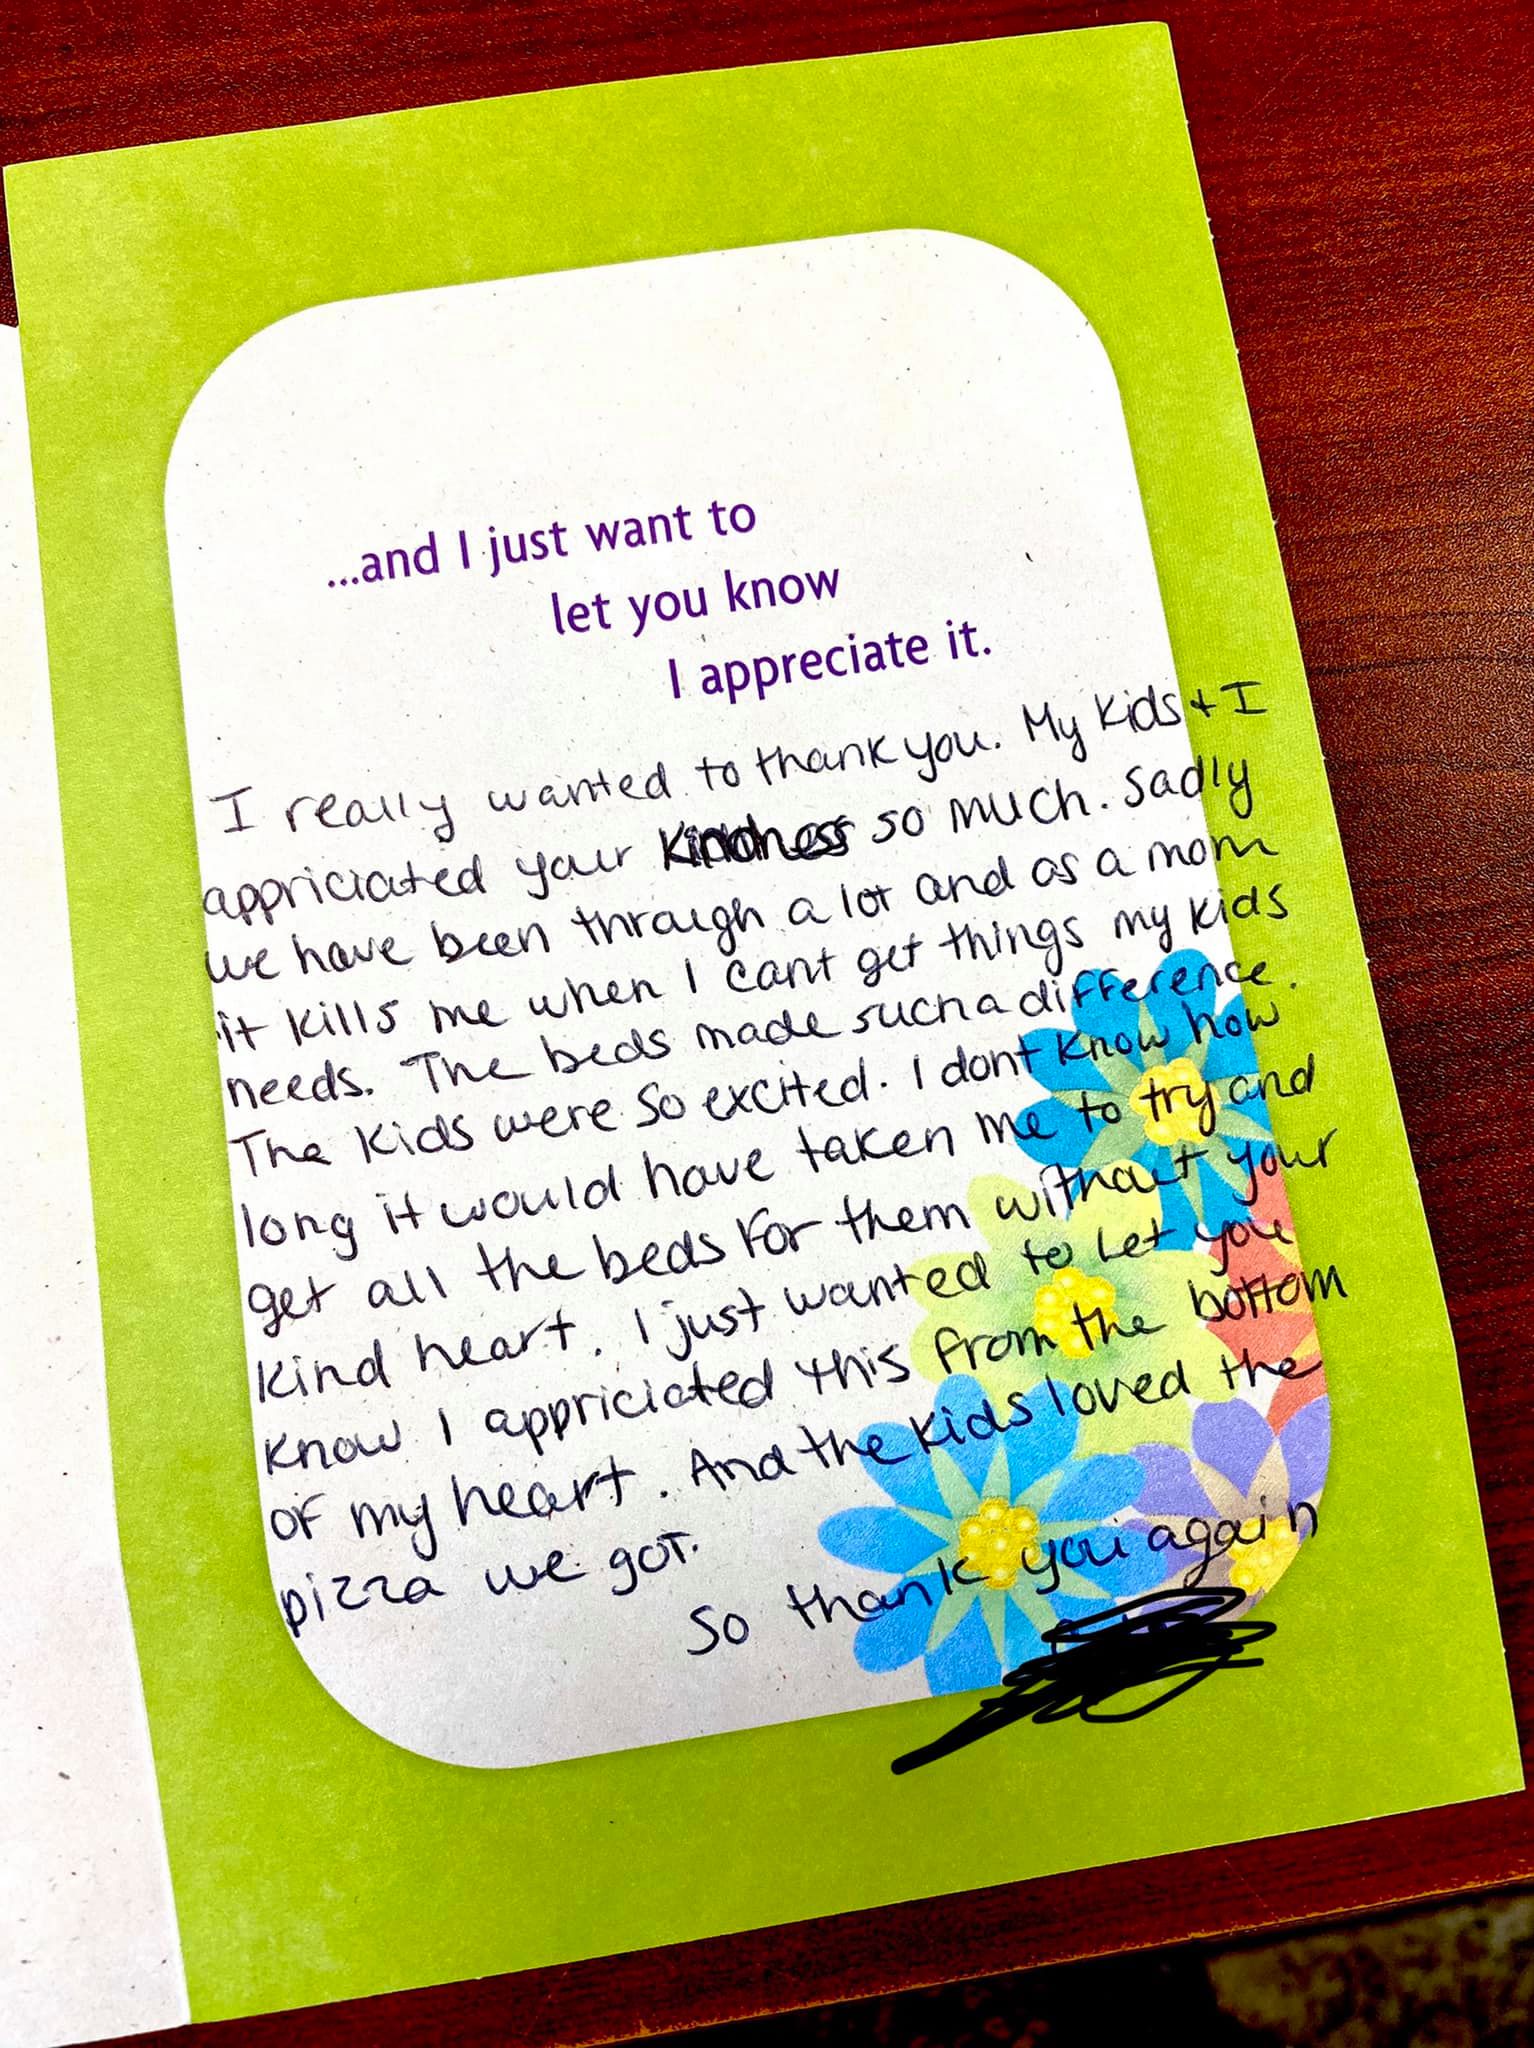 ...and I just want to
let you know
I appreciate it.
I really wanted to thank you. My Kids + I
appriciated your Kindness so much. Sadly
we have been through a lot and as a mom
it kills me when I cant get things my kids
needs. The beds made such a difference.
The kids were so excited. I dont know how
long it would have taken me to try and
get all the beds for them without your
kind heart. I just wanted to let you
know I appriciated this from the bottom
of my heart. And the kids loved the
pizza we got.
So thank you again